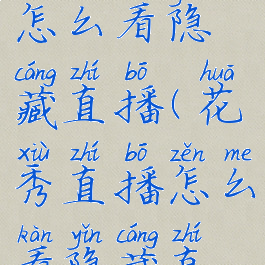 怎么看隐
cáng zhí bō huā
藏直播(花
xiù zhí bō zěn me
秀直播怎么
kàn yǐn cáng zhí
看隐藏直